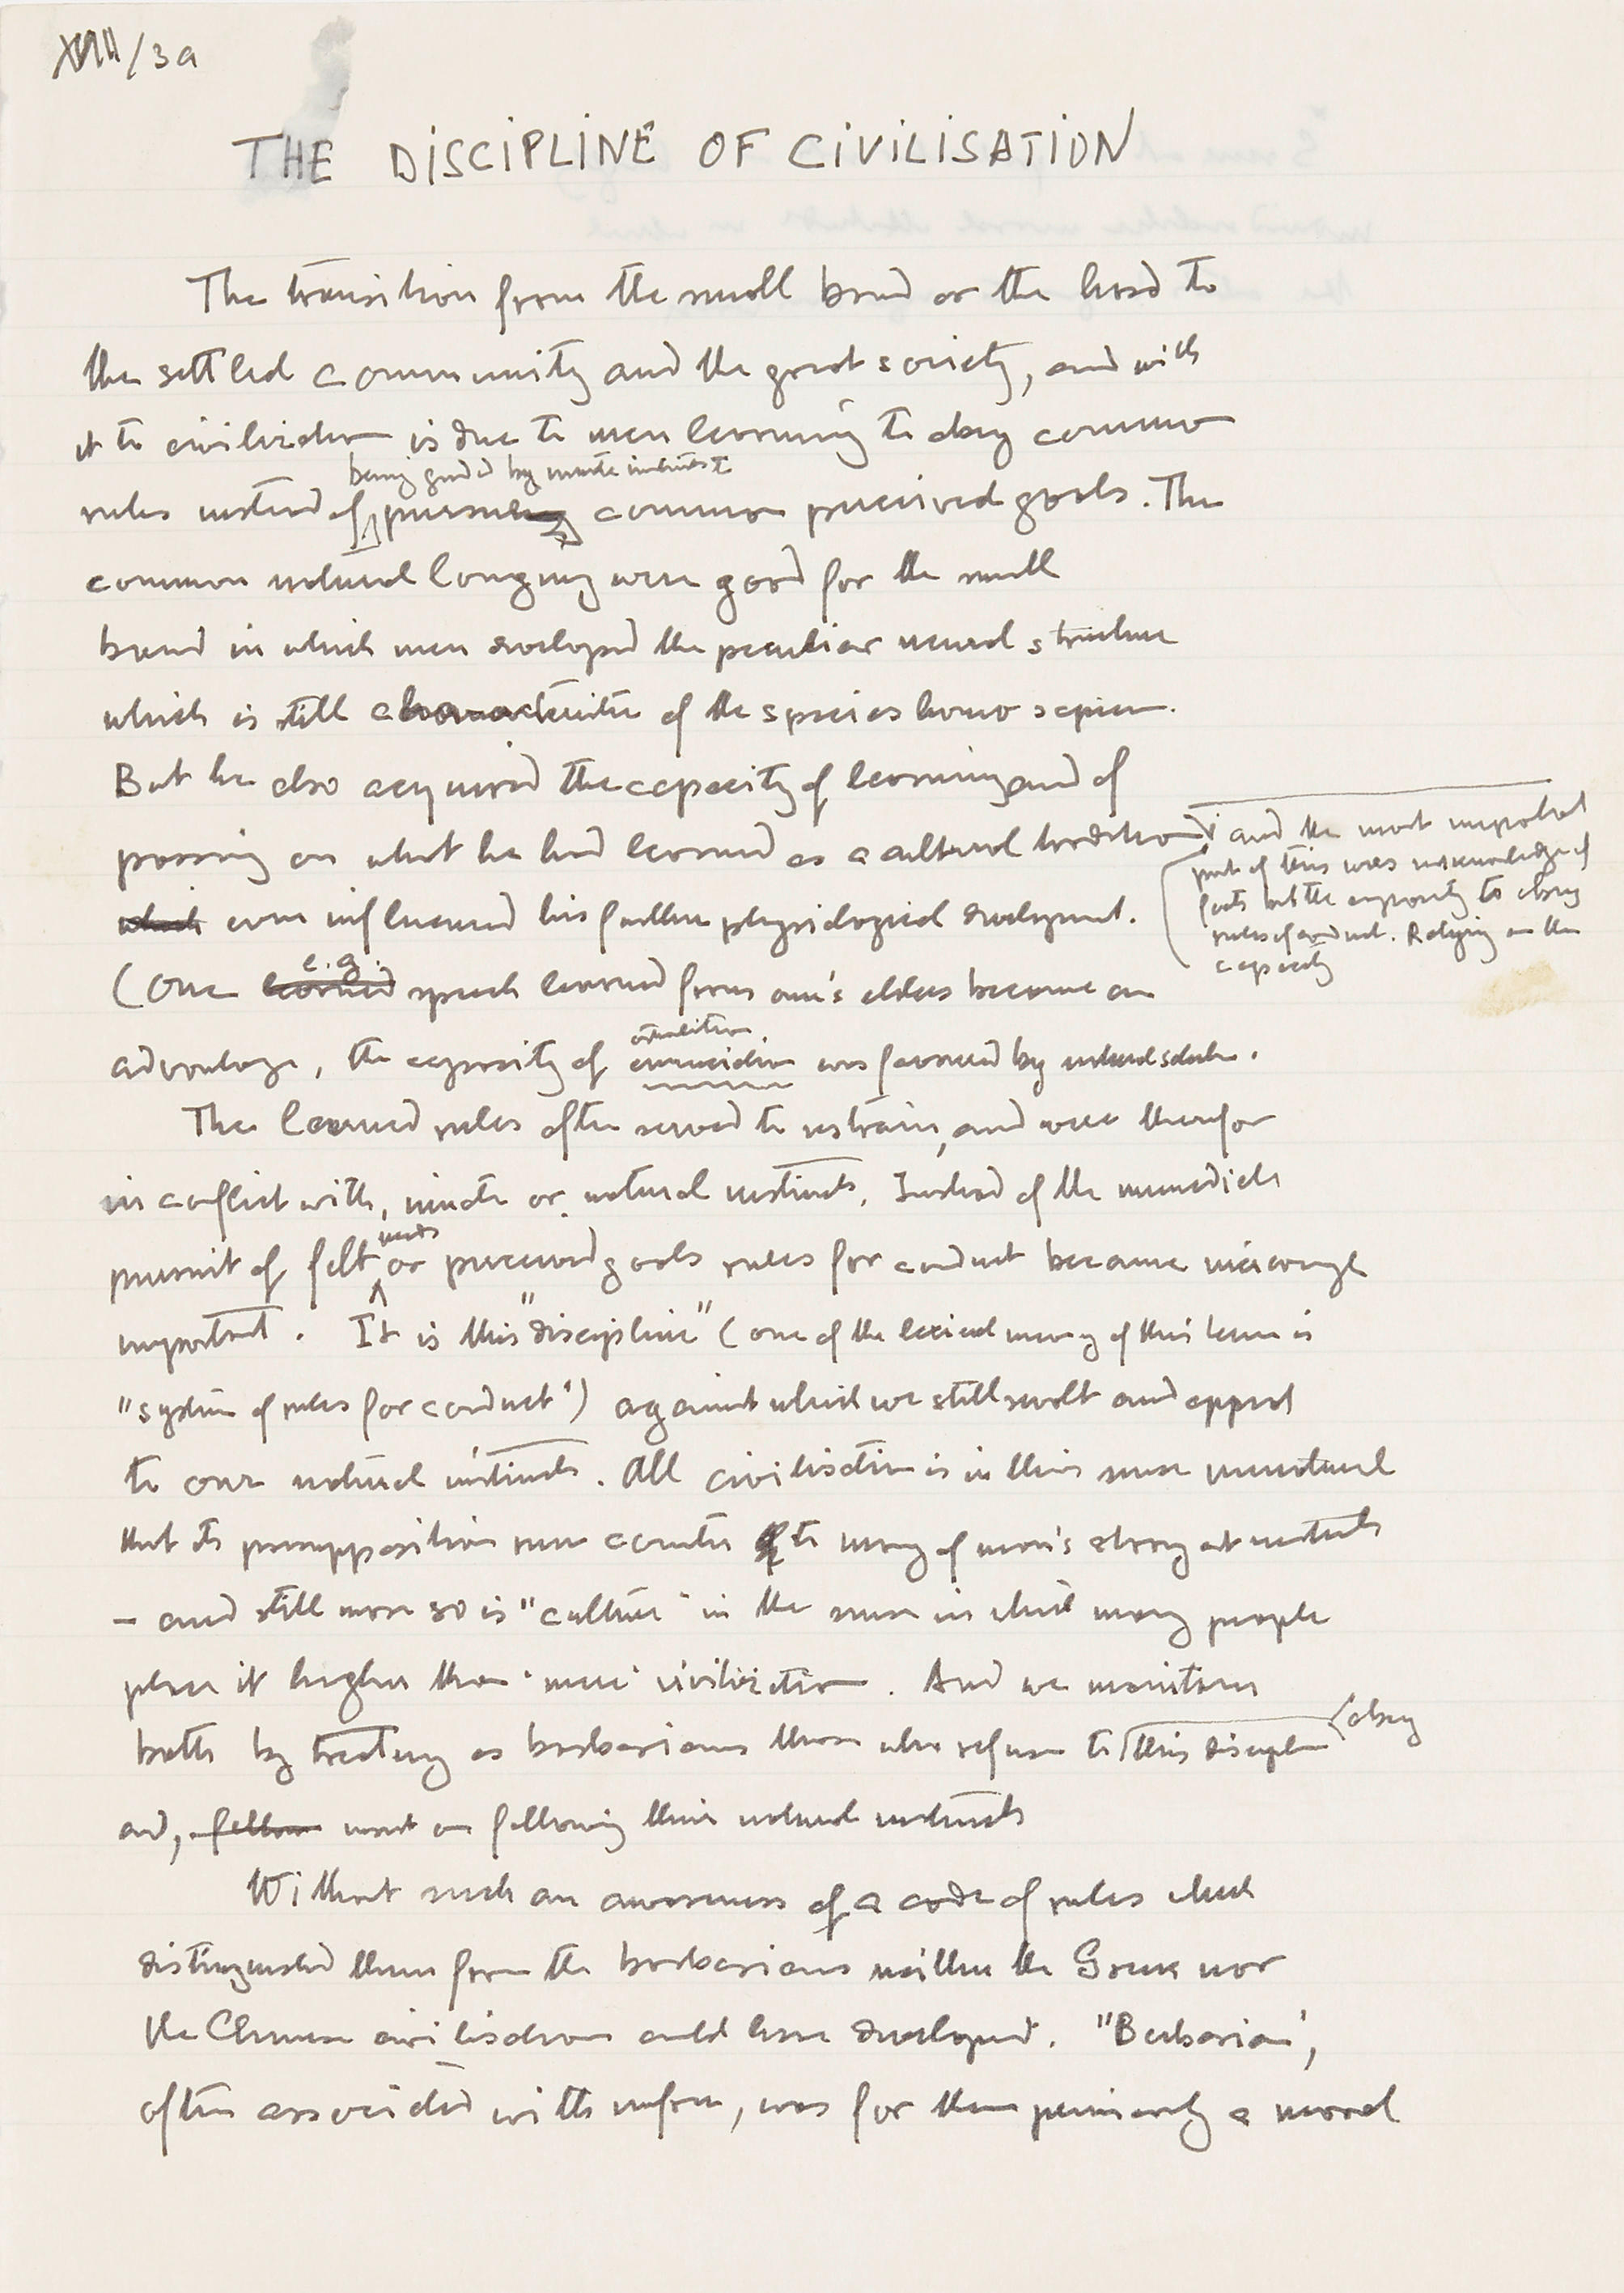 XVIII/3a
THE DISCIPLINE OF CIVILISATION
The transition from the small band or the herd to
the settled community and the great society, and with
it to civilization is due to men learning to obey common
being guided by innate instincts to
rules instead of pursue common perceived goals. The
common natural longing were good for the small
band in which men developed the peculiar neural structure
which is still characteristic of the species homo sapiens.
But he also acquired the capacity of learning and of
passing on what he had learned as a cultural tradition
and the most important
part of this was not knowledge of
facts but the capacity to obey
rules of conduct. Relying on the
capacity
which even influenced his further physiological development.
e.g.
(Once learned speech learned from one's elders became an
advantage, the capacity of was favoured by natural selection.
The learned rules often served to restrain, and were therefor
in conflict with, innate or natural instincts. Instead of the immediate
needs
pursuit of felt or perceived goals rules for conduct became increasingly
important. It is this "discipline" (one of the lexical meaning of this term is
"system of rules for conduct") against which we still revolt and appeal
to our natural instincts. All civilisation is in this sense unnatural
that its presupposition run counter to many of man's strongest instincts
- and still more so is "culture" in the sense in which many people
place it higher than 'mere' civilization. And we maintain
both by treating as barbarians those who refuse to this discipline
obey
and, follow went on following their natural instincts
Without such an awareness of a code of rules which
distinguished them from the barbarians neither the Greek nor
the Chinese civilisation could have developed. "Barbarian",
often associated with unfree, was for them primarily a moral